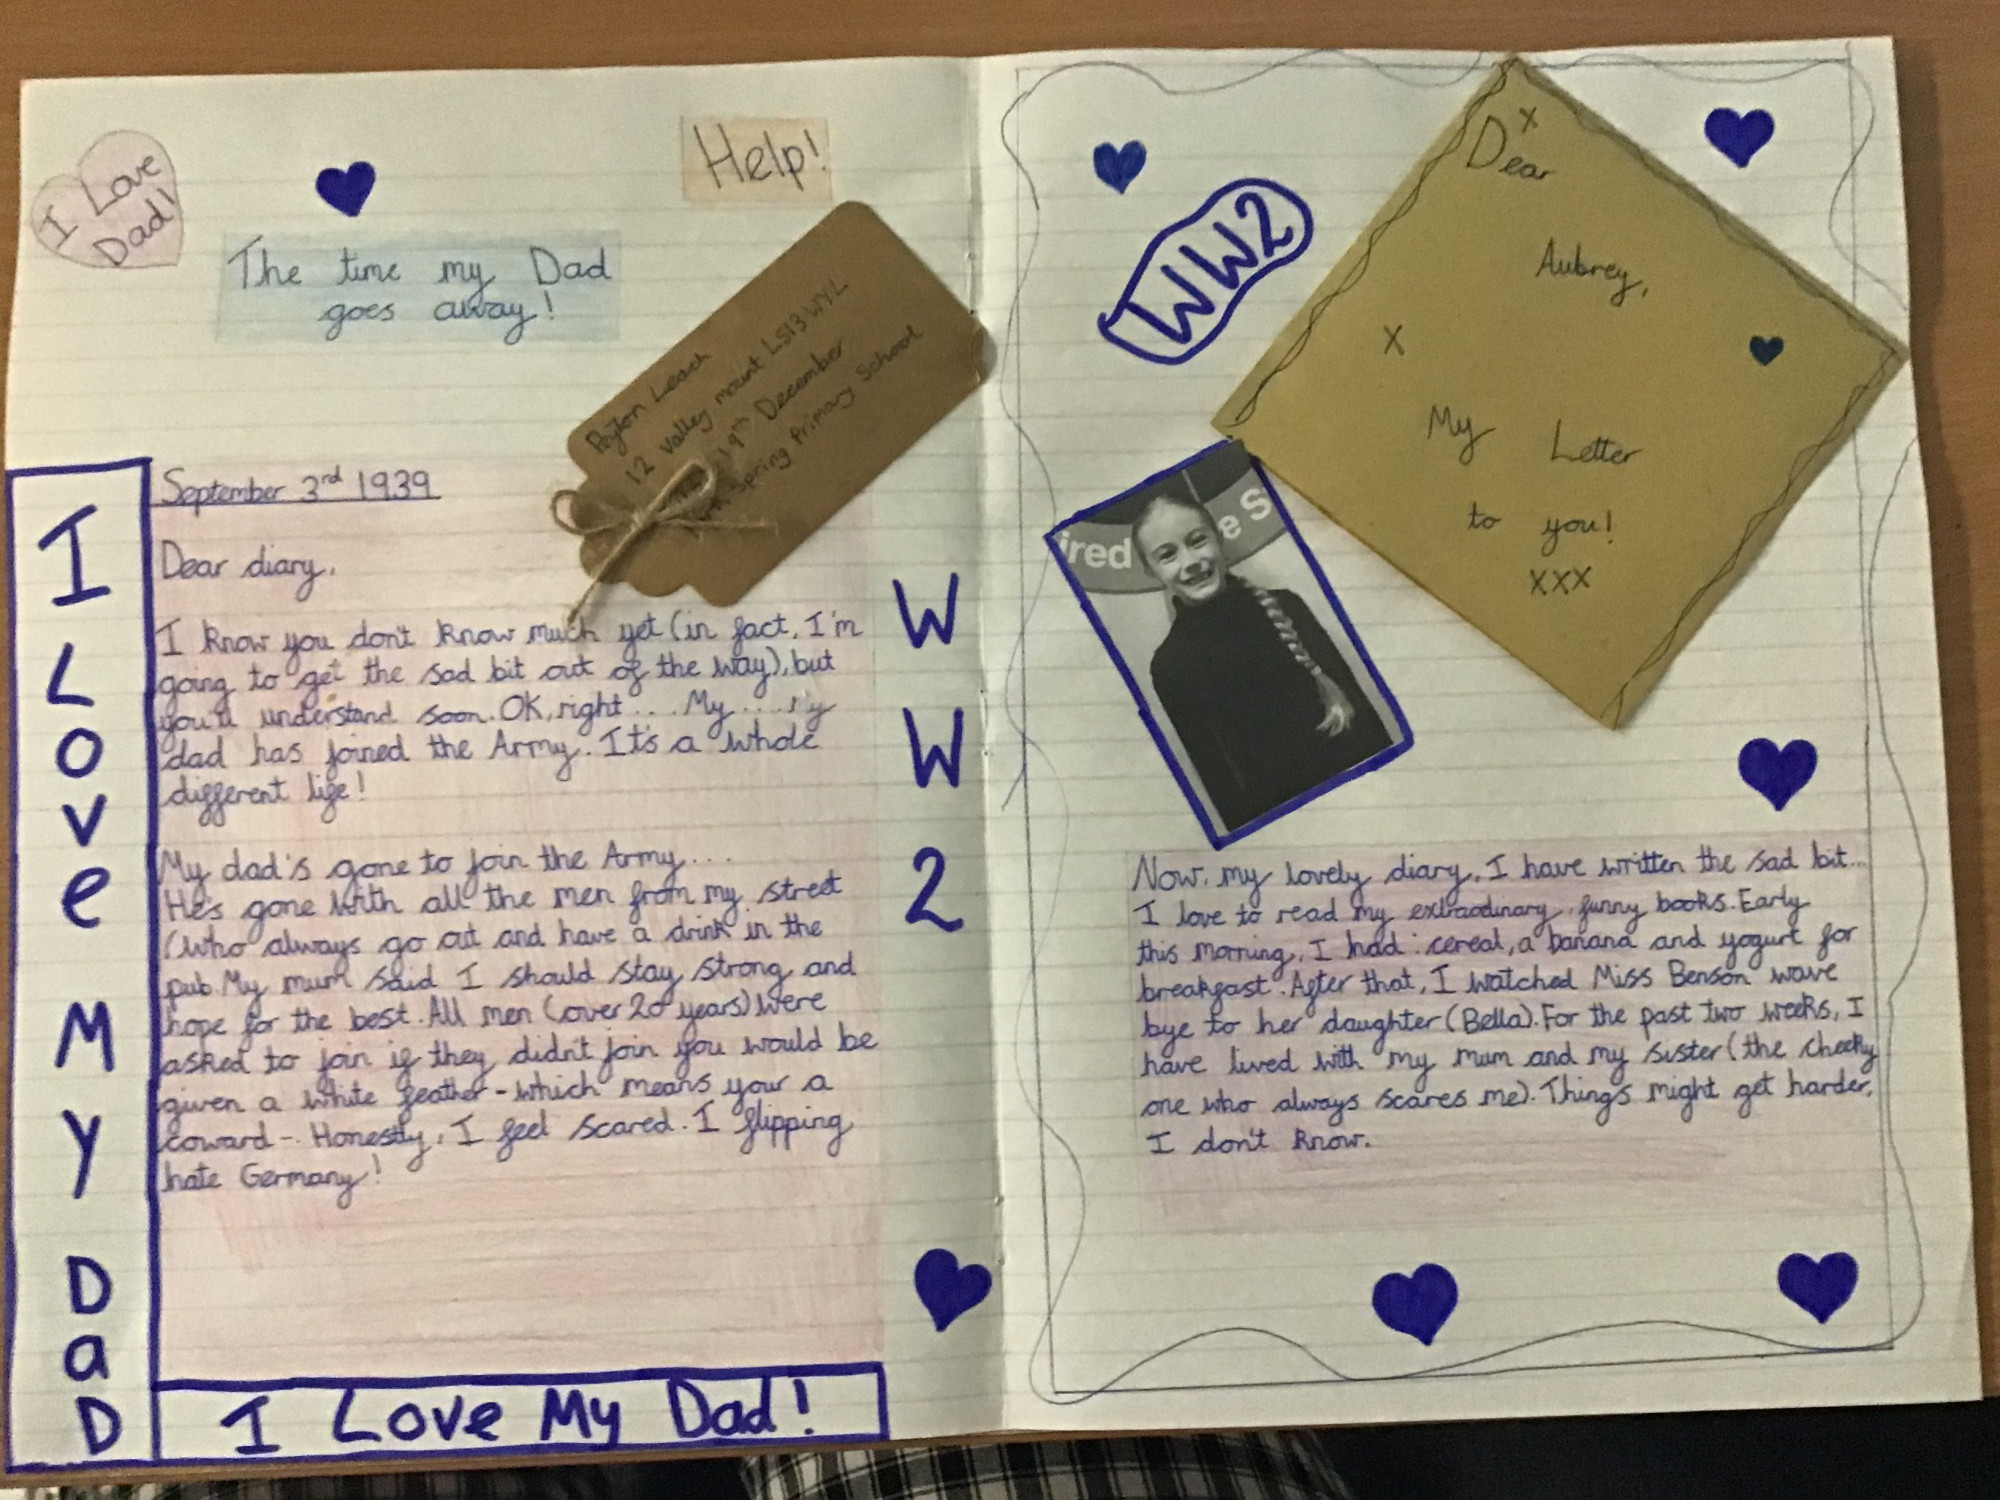 I Love
Dad!
The time my Dad
goes away!
Help!
Peyton Leach
12 Valley mount LS13 WYL
19th December
Spring Primary School
I Love My Dad
September 3rd 1939
Dear diary,
I know you don't know much yet (in fact, I'm
going to get the sad bit out of the way), but
you'll understand soon. OK, right... My... My
dad has joined the Army. It's a whole
different life!
My dad's gone to join the Army...
He's gone with all the men from my street
(who always go out and have a drink in the
pub. My mum said I should stay strong and
hope for the best. All men (over 20 years) were
asked to join if they didn't join you would be
given a white feather - which means your a
coward -. Honestly, I feel scared. I flipping
hate Germany!
I Love My Dad!
WW2
WW2
Dear
Aubrey,
My Letter
to you!
XXX
ired
e S
Now, my lovely diary, I have written the sad bit...
I love to read my extraodinary, funny books. Early
this morning, I had : cereal, a banana and yogurt for
breakfast. After that, I watched Miss Benson wave
bye to her daughter (Bella). For the past two weeks, I
have lived with my mum and my sister (the cheeky
one who always scares me). Things might get harder,
I don't know.